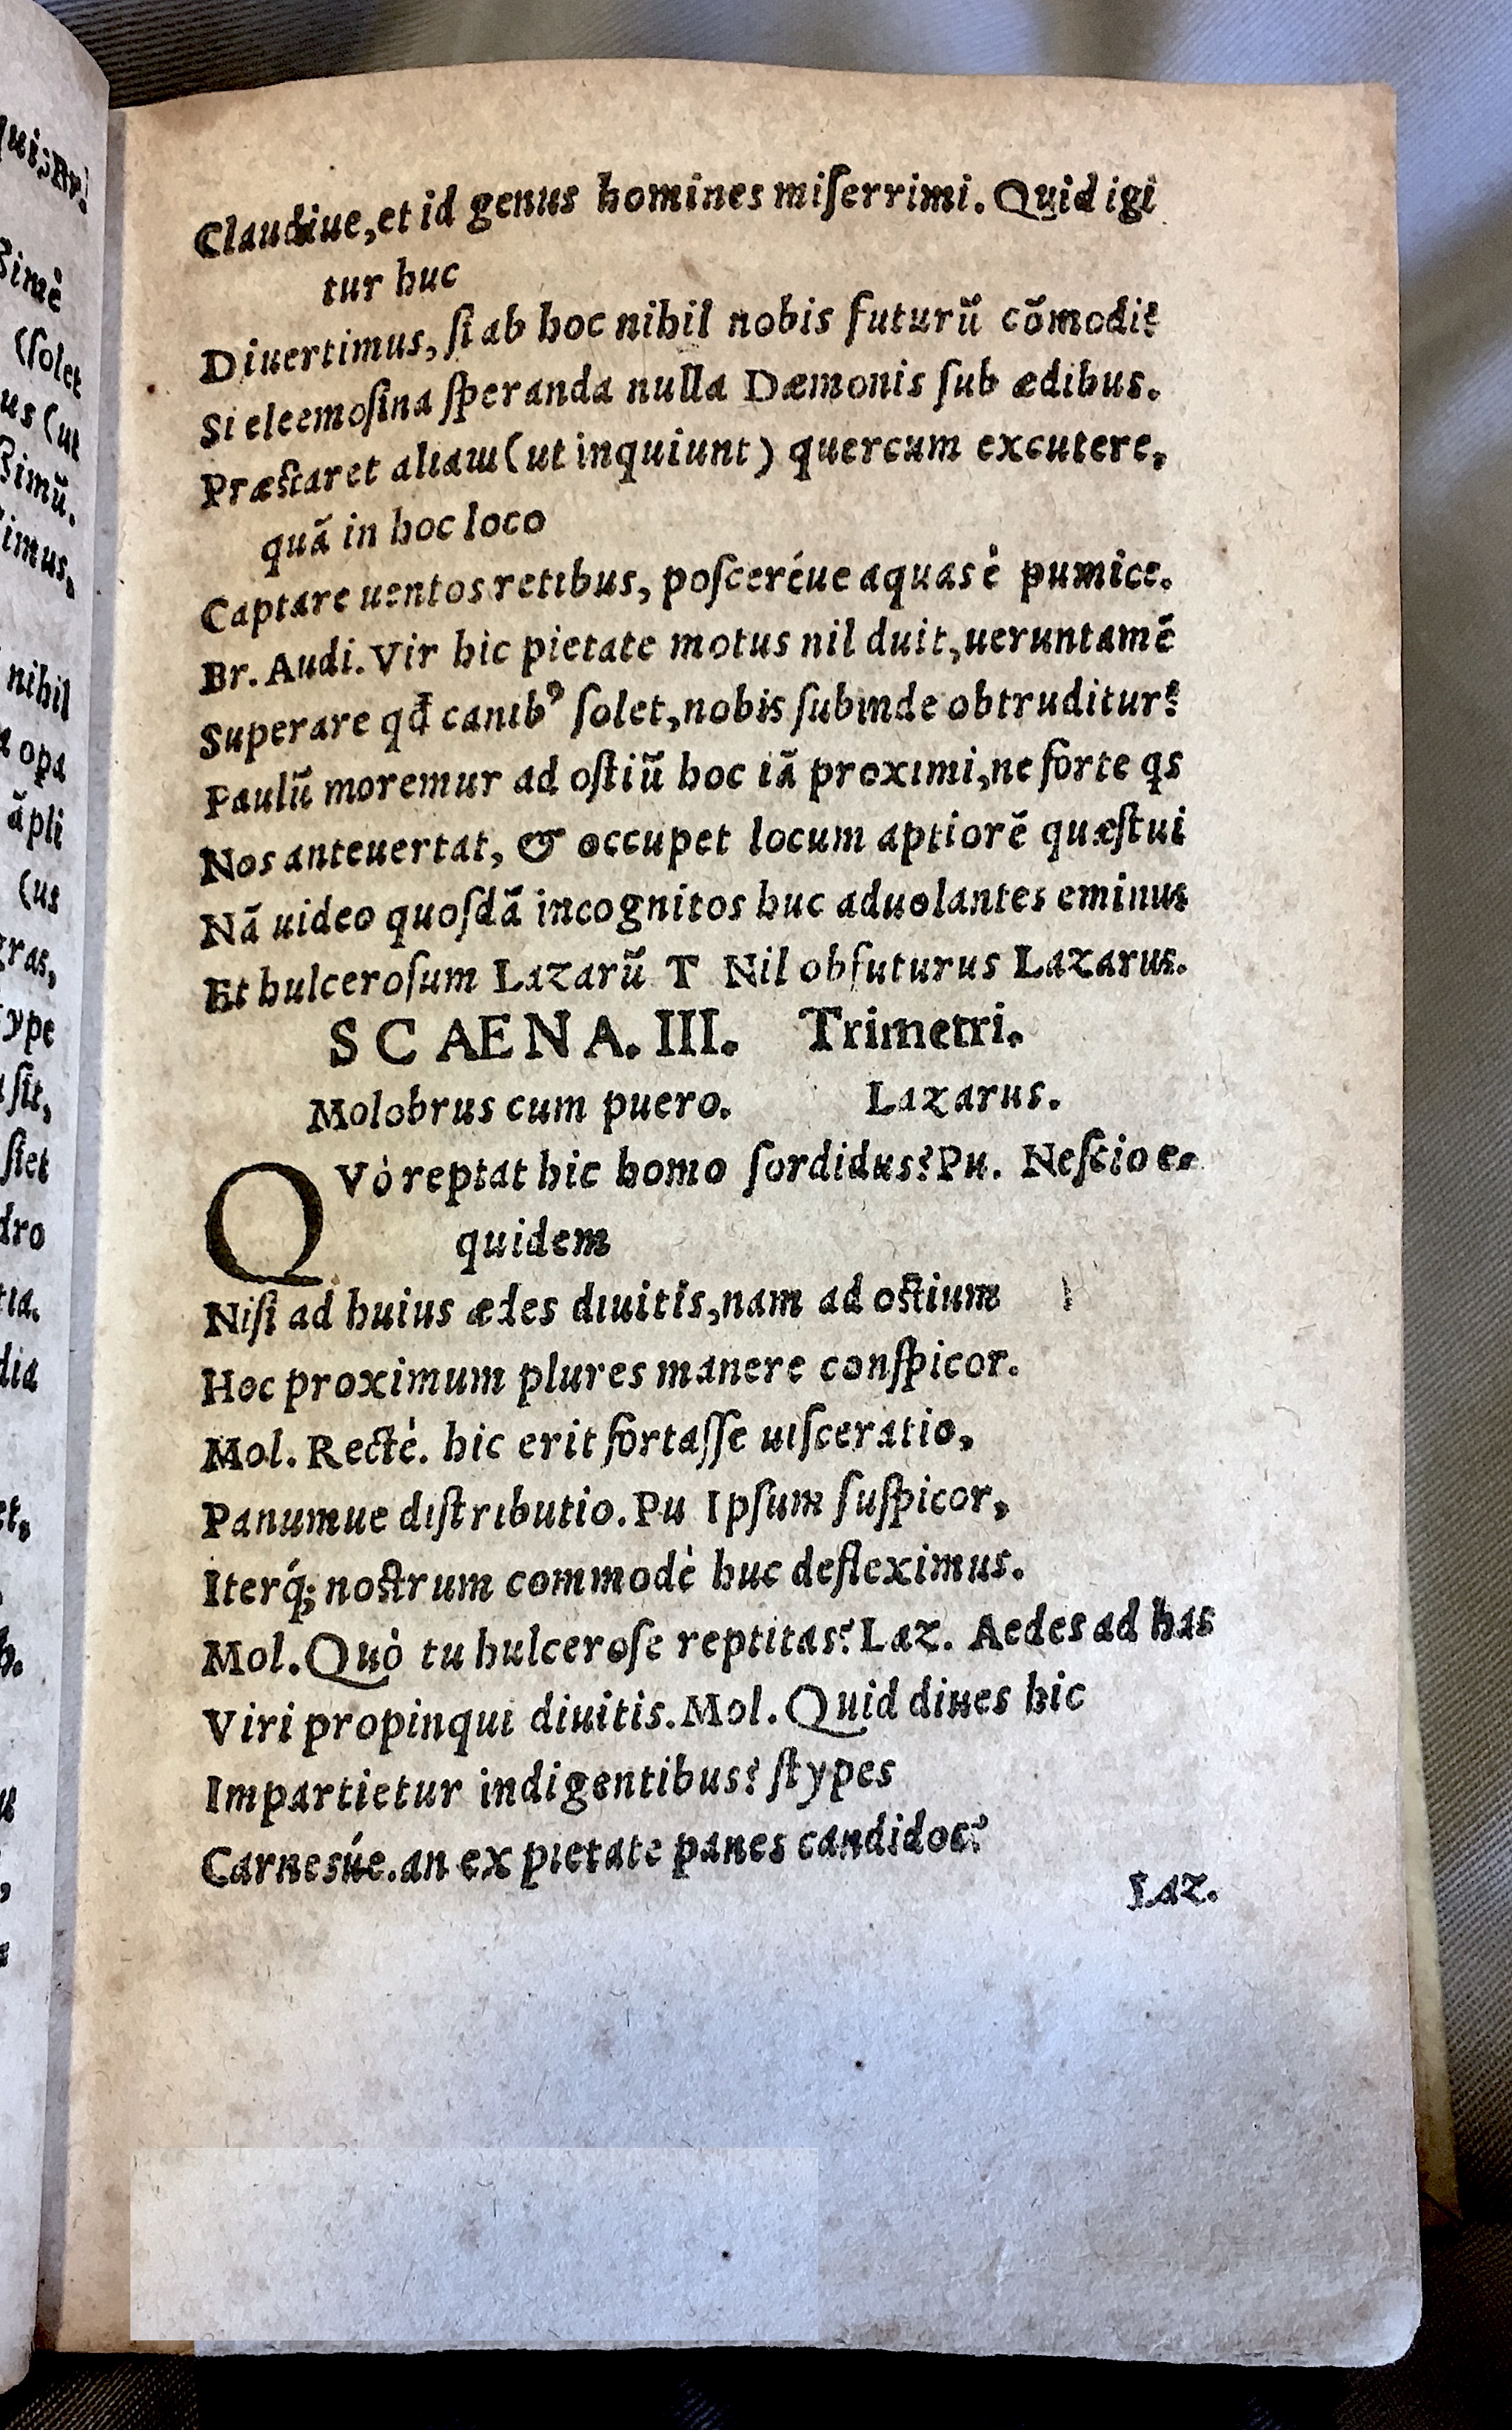 Claudiue, et id genus homines miſerrimi. Quid igi
tur huc
Diuertimus, ſi ab hoc nihil nobis futurũ cõmodi?
Si eleemoſina ſperanda nulla Dæmonis ſub ædibus.
Præſtaret aliam (ut inquiunt) quercum excutere,
quã in hoc loco
Captare uentos retibus, poſceréue aquas è pumice.
Br. Audi. Vir hic pietate motus nil duit, ueruntamẽ
Superare qđ canibꝰ ſolet, nobis ſubinde obtruditur?
Paulũ moremur ad oſtiũ hoc iã proximi, ne forte qs
Nos anteuertat, & occupet locum aptiorẽ quæſtui
Nã uideo quoſdã incognitos huc aduolantes eminus
Et hulceroſum Lazarũ T Nil obfuturus Lazarus.
SCAENA. III. Trimetri.
Molobrus cum puero. Lazarus.
QVò reptat hic homo ſordidus? Pu. Neſcio e-
quidem
Niſi ad huius ædes diuitis, nam ad oſtium
Hoc proximum plures manere conſpicor.
Mol. Rectè. hic erit fortaſſe uiſceratio,
Panumue diſtributio. Pu Ipſum ſuſpicor,
Iterq́; noſtrum commodè huc defleximus.
Mol. Quò tu hulceroſe reptitas? Laz. Aedes ad has
Viri propinqui diuitis. Mol. Quid diues hic
Impartietur indigentibus? ſtypes
Carnesúe. an ex pietate panes candidos?
Laz.